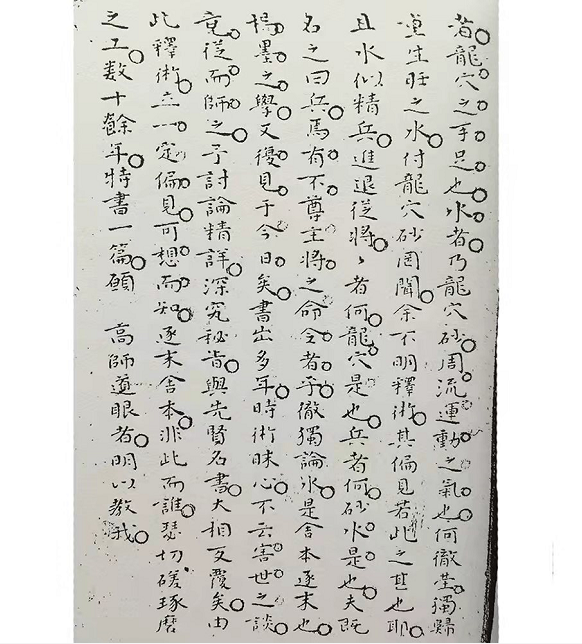 者龍穴之手足也水者乃龍穴砂周流運動之氣也何徹瑩獨歸
重生旺之水付龍穴砂罔聞余不明釋術其偏見若此之甚也耶
且水似精兵進退從將將者何龍穴是也兵者何砂水是也夫既
名之曰兵焉有不尊主將之命令者乎徹獨論水是舍本逐末也
楊墨之學又復見于今日矣書出多年時術昧心不云害世之談
竟從而師之予討論精詳深究秘旨與先賢名書大相反覆矣由
此釋術立一定偏見可想而知逐末舍本非此而誰瑟切磋琢磨
之工数十餘年特書一篇願 高師道眼者明以教我